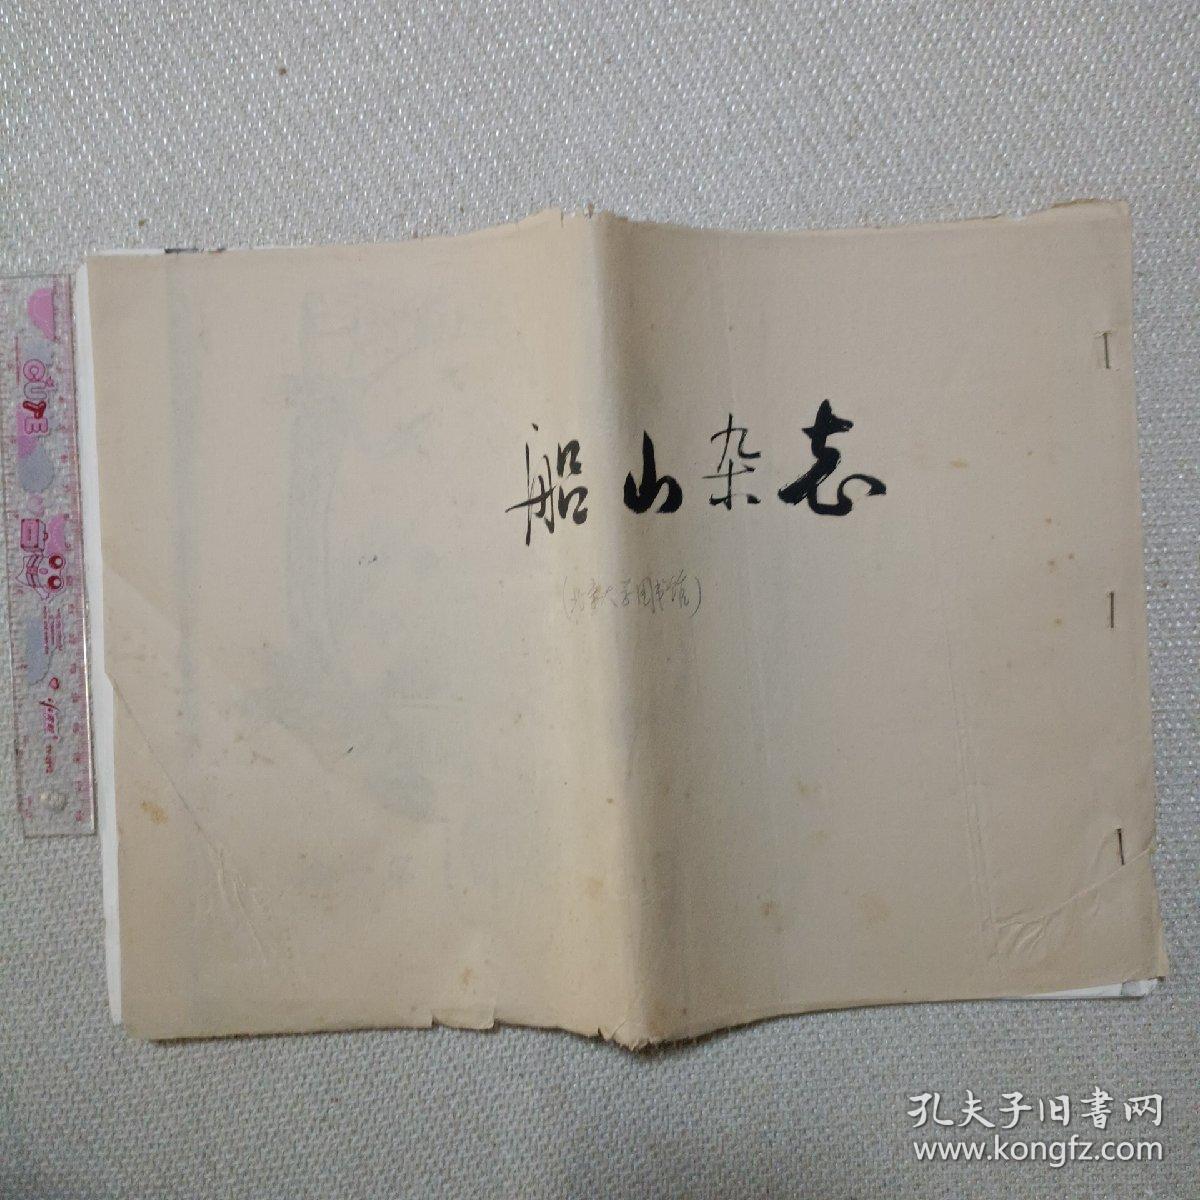 船山杂志
(北京大学图书馆)
CUTE
孔夫子旧書网
www.kongfz.com